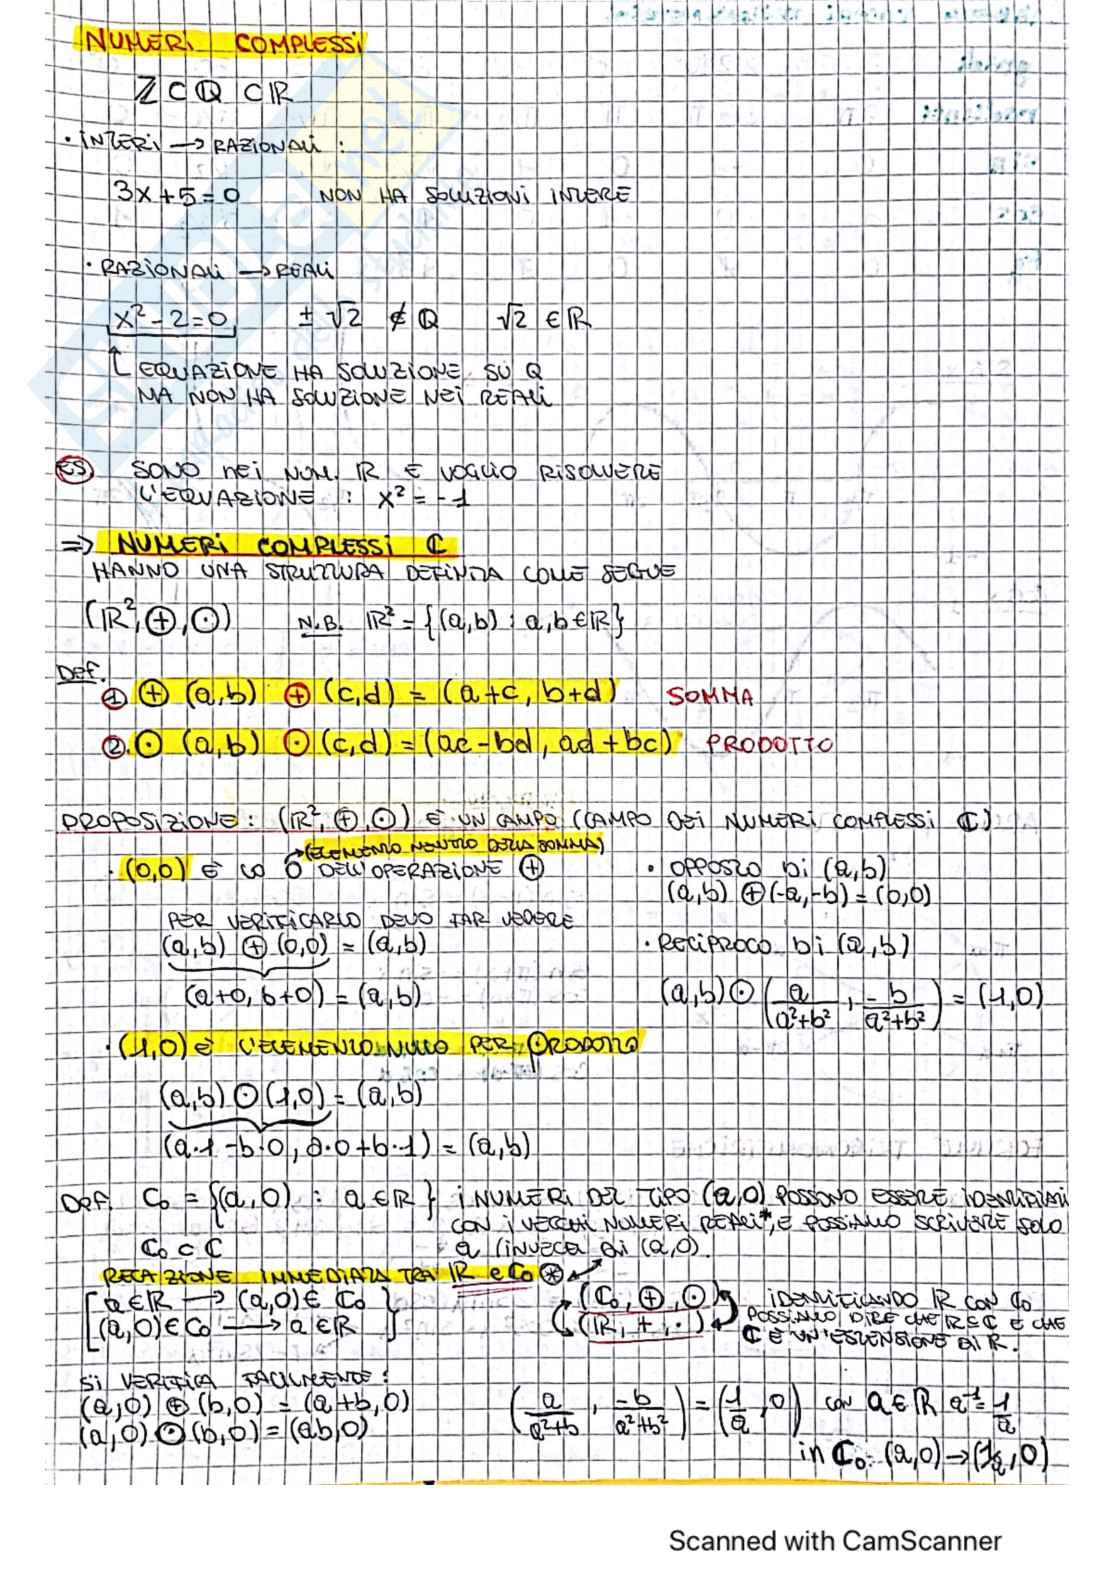 NUMERI COMPLESSI
ℤ ⊂ ℚ ⊂ ℝ
· INTERI → RAZIONALI :
3x+5=0 NON HA SOLUZIONI INTERE
· RAZIONALI → REALI
x²-2=0 ±√2 ∉ ℚ √2 ∈ ℝ
EQUAZIONE HA SOLUZIONE SU Q
MA NON HA SOLUZIONE NEI REALI
ES) SONO NEI NUM. ℝ E VOGLIO RISOLVERE
L'EQUAZIONE : x² = -1
⇒ NUMERI COMPLESSI ℂ
HANNO UNA STRUTTURA DEFINITA COME SEGUE
(ℝ², ⊕, ⊙) N.B. ℝ² = {(a,b) : a,b ∈ ℝ}
Def.
① ⊕ (a,b) ⊕ (c,d) = (a+c, b+d) SOMMA
②. ⊙ (a,b) ⊙ (c,d) = (ac-bd, ad+bc) PRODOTTO
PROPOSIZIONE: (ℝ², ⊕, ⊙) È UN CAMPO (CAMPO DEI NUMERI COMPLESSI ℂ)
→(ELEMENTO NEUTRO DELLA SOMMA)
· (0,0) È LO 0 DELL'OPERAZIONE ⊕
PER VERIFICARLO DEVO FAR VEDERE
(a,b) ⊕ (0,0) = (a,b)
(a+0, b+0) = (a,b)
· OPPOSTO DI (a,b)
(a,b) ⊕ (-a,-b) = (0,0)
· RECIPROCO DI (a,b)
(a,b) ⊙ (a/(a²+b²), -b/(a²+b²)) = (1,0)
· (1,0) È L'ELEMENTO NULLO PER PRODOTTO
(a,b) ⊙ (1,0) = (a,b)
(a·1 - b·0, a·0 + b·1) = (a,b)
DEF. C₀ = {(a,0) : a ∈ ℝ} I NUMERI DEL TIPO (a,0) POSSONO ESSERE IDENTIFICATI
CON I VECCHI NUMERI REALI*, E POSSIAMO SCRIVERE SOLO
C₀ ⊂ C a (INVECE DI (a,0).
RELAZIONE IMMEDIATA TRA ℝ e C₀ ⊛
[a ∈ ℝ → (a,0) ∈ C₀
(a,0) ∈ C₀ → a ∈ ℝ]
(C₀, ⊕, ⊙)
(ℝ, +, ·)
IDENTIFICANDO ℝ CON C₀
POSSIAMO DIRE CHE ℝ ⊆ ℂ E CHE
ℂ È UN'ESTENSIONE DI ℝ.
SI VERIFICA FACILMENTE :
(a,0) ⊕ (b,0) = (a+b,0)
(a,0) ⊙ (b,0) = (ab,0)
(a/(a²+b), -b/(a²+b²)) = (1/a, 0) con a ∈ ℝ a⁻¹ = 1/a
in ℂ₀: (a,0) → (1/a, 0)
Scanned with CamScanner